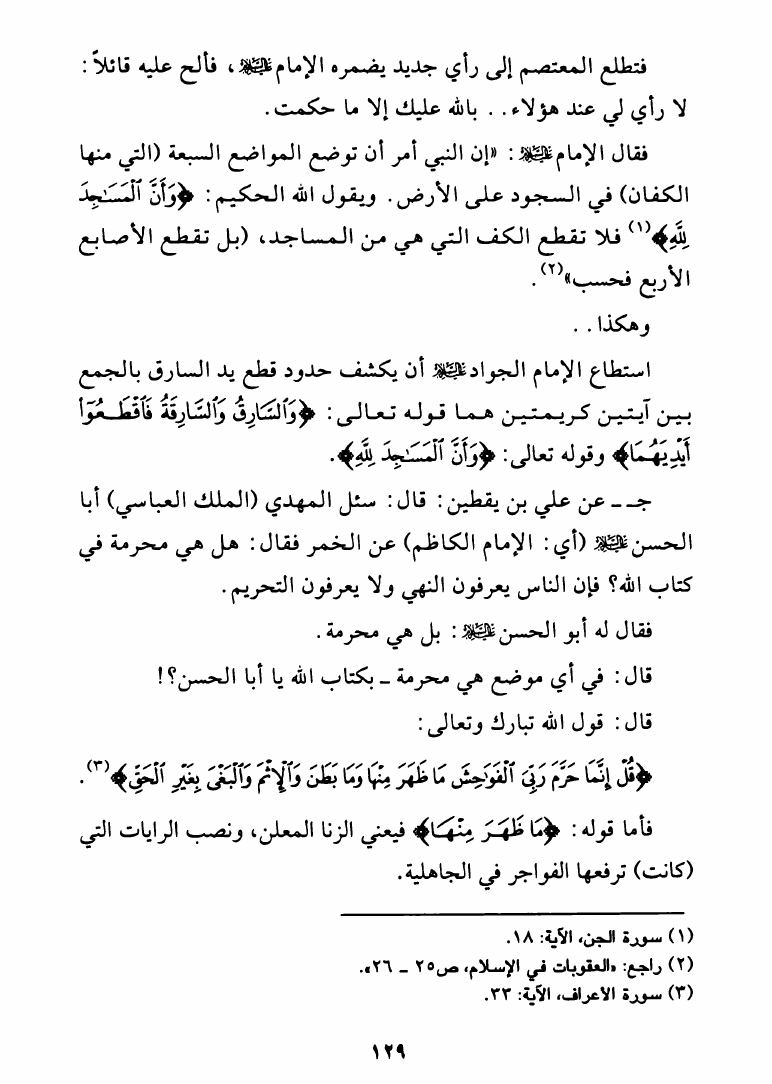 فتطلع المعتصم إلى رأي جديد يضمره الإمام عليه السلام، فألح عليه قائلاً:
لا رأي لي عند هؤلاء.. بالله عليك إلا ما حكمت.
فقال الإمام عليه السلام: «إن النبي أمر أن توضع المواضع السبعة (التي منها
الكفان) في السجود على الأرض. ويقول الله الحكيم: ﴿وَأَنَّ ٱلْمَسَٰجِدَ
لِلَّهِ﴾(١) فلا تقطع الكف التي هي من المساجد، (بل تقطع الأصابع
الأربع فحسب»(٢).
وهكذا..
استطاع الإمام الجواد عليه السلام أن يكشف حدود قطع يد السارق بالجمع
بين آيتين كريمتين هما قوله تعالى: ﴿وَٱلسَّارِقُ وَٱلسَّارِقَةُ فَٱقْطَعُوٓا۟
أَيْدِيَهُمَا﴾ وقوله تعالى: ﴿وَأَنَّ ٱلْمَسَٰجِدَ لِلَّهِ﴾.
جـ ـ عن علي بن يقطين: قال: سئل المهدي (الملك العباسي) أبا
الحسن عليه السلام (أي: الإمام الكاظم) عن الخمر فقال: هل هي محرمة في
كتاب الله؟ فإن الناس يعرفون النهي ولا يعرفون التحريم.
فقال له أبو الحسن عليه السلام: بل هي محرمة.
قال: في أي موضع هي محرمة ـ بكتاب الله يا أبا الحسن؟!
قال: قول الله تبارك وتعالى:
﴿قُلْ إِنَّمَا حَرَّمَ رَبِّىَ ٱلْفَوَٰحِشَ مَا ظَهَرَ مِنْهَا وَمَا بَطَنَ وَٱلْإِثْمَ وَٱلْبَغْىَ بِغَيْرِ ٱلْحَقِّ﴾(٣).
فأما قوله: ﴿مَا ظَهَرَ مِنْهَا﴾ فيعني الزنا المعلن، ونصب الرايات التي
(كانت) ترفعها الفواجر في الجاهلية.
(١) سورة الجن، الآية: ١٨.
(٢) راجع: «العقوبات في الإسلام، ص٢٥ ـ ٢٦».
(٣) سورة الأعراف، الآية: ٣٣.
١٢٩